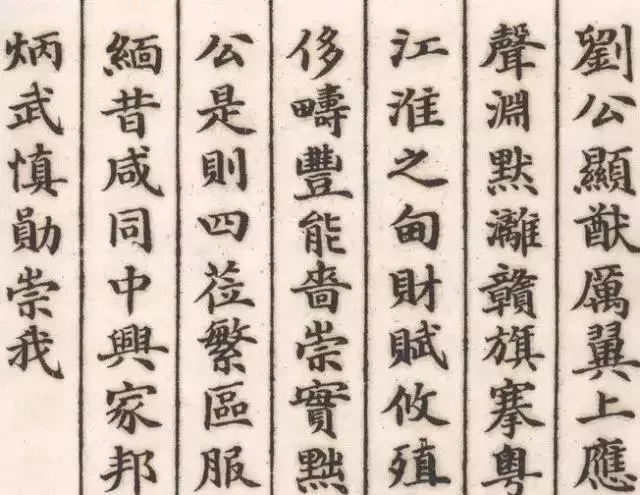 劉公顯猷厲翼上應
聲淵默灕贛旗搴粤
江淮之甸財賦攸殖
侈疇豐能嗇崇實黜
公是則四莅繁區服
緬昔咸同中興家邦
炳武慎勛崇我